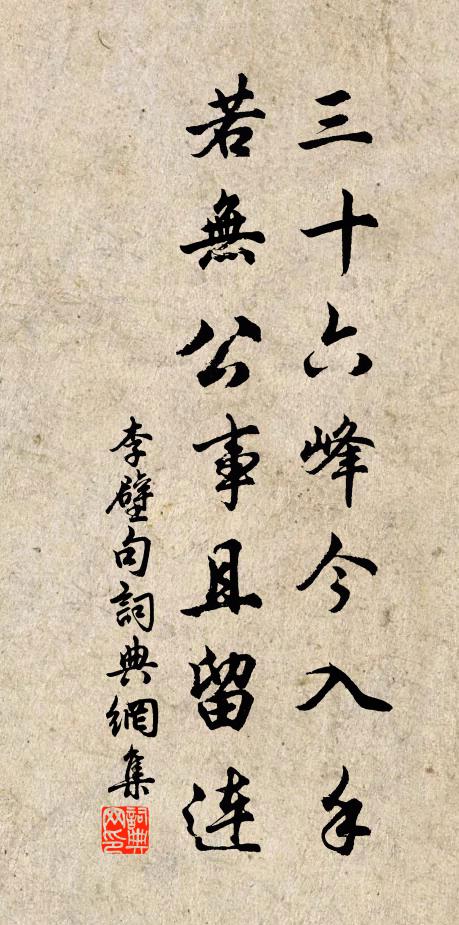 三十六峰今入手
若無公事且留连
李壁句詞典網集
詞典网印